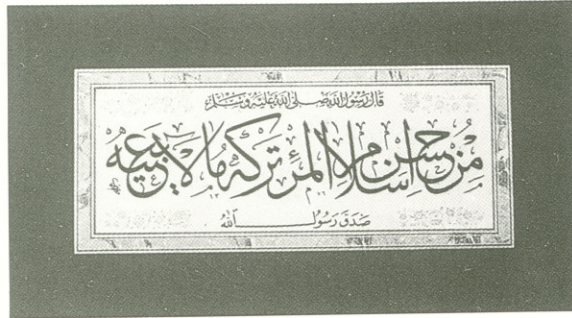 قال رسول الله صلى الله عليه وسلم
من حسن إسلام المرء تركه ما لا يعنيه
صدق رسول الله